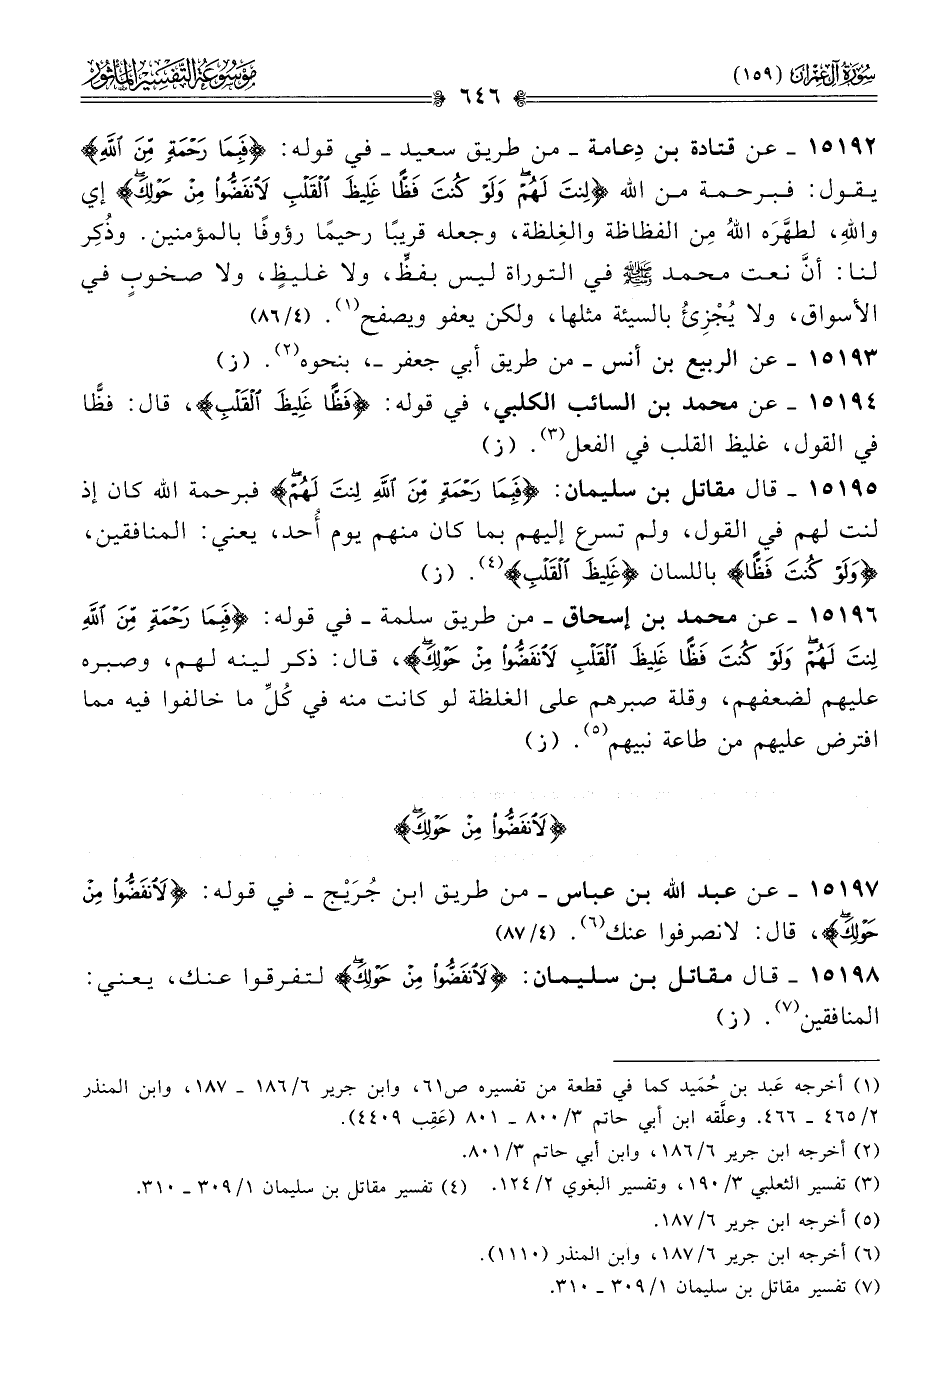 سُورَةُ آلِ عِمْرَان (١٥٩)
٦٤٦
مَوْسُوعَةُ التَّفْسِيرِ المَأْثُورِ
١٥١٩٢ ـ عن قتادة بن دِعامة ـ من طريق سعيد ـ في قوله: ﴿فَبِمَا رَحْمَةٍ مِّنَ ٱللَّهِ﴾
يقول: فبرحمة من الله ﴿لِنتَ لَهُمْ وَلَوْ كُنتَ فَظًّا غَلِيظَ ٱلْقَلْبِ لَٱنفَضُّوا۟ مِنْ حَوْلِكَ﴾ إي
واللهِ، لطهَّرَه اللهُ مِن الفظاظة والغِلظة، وجعله قريبًا رحيمًا رؤوفًا بالمؤمنين. وذُكِر
لنا: أنَّ نعت محمد ﷺ في التوراة ليس بفظٍّ، ولا غليظٍ، ولا صخوبٍ في
الأسواق، ولا يُجْزِئُ بالسيئة مثلها، ولكن يعفو ويصفح(١). (٨٦/٤)
١٥١٩٣ ـ عن الربيع بن أنس ـ من طريق أبي جعفر ـ، بنحوه(٢). (ز)
١٥١٩٤ ـ عن محمد بن السائب الكلبي، في قوله: ﴿فَظًّا غَلِيظَ ٱلْقَلْبِ﴾، قال: فظًّا
في القول، غليظ القلب في الفعل(٣). (ز)
١٥١٩٥ ـ قال مقاتل بن سليمان: ﴿فَبِمَا رَحْمَةٍ مِّنَ ٱللَّهِ لِنتَ لَهُمْ﴾ فبرحمة الله كان إذ
لنت لهم في القول، ولم تسرع إليهم بما كان منهم يوم أُحد، يعني: المنافقين،
﴿وَلَوْ كُنتَ فَظًّا﴾ باللسان ﴿غَلِيظَ ٱلْقَلْبِ﴾(٤). (ز)
١٥١٩٦ ـ عن محمد بن إسحاق ـ من طريق سلمة ـ في قوله: ﴿فَبِمَا رَحْمَةٍ مِّنَ ٱللَّهِ
لِنتَ لَهُمْ وَلَوْ كُنتَ فَظًّا غَلِيظَ ٱلْقَلْبِ لَٱنفَضُّوا۟ مِنْ حَوْلِكَ﴾، قال: ذكر لينه لهم، وصبره
عليهم لضعفهم، وقلة صبرهم على الغلظة لو كانت منه في كُلِّ ما خالفوا فيه مما
افترض عليهم من طاعة نبيهم(٥). (ز)
﴿لَٱنفَضُّوا۟ مِنْ حَوْلِكَ﴾
١٥١٩٧ ـ عن عبد الله بن عباس ـ من طريق ابن جُرَيْج ـ في قوله: ﴿لَٱنفَضُّوا۟ مِنْ
حَوْلِكَ﴾، قال: لانصرفوا عنك(٦). (٨٧/٤)
١٥١٩٨ ـ قال مقاتل بن سليمان: ﴿لَٱنفَضُّوا۟ مِنْ حَوْلِكَ﴾ لتفرقوا عنك، يعني:
المنافقين(٧). (ز)
(١) أخرجه عَبد بن حُمَيد كما في قطعة من تفسيره ص٦١، وابن جرير ١٨٦/٦ ـ ١٨٧، وابن المنذر
٤٦٥/٢ ـ ٤٦٦. وعلَّقه ابن أبي حاتم ٨٠٠/٣ ـ ٨٠١ (عَقِب ٤٤٠٩).
(٢) أخرجه ابن جرير ١٨٦/٦، وابن أبي حاتم ٨٠١/٣.
(٣) تفسير الثعلبي ١٩٠/٣، وتفسير البغوي ١٢٤/٢. (٤) تفسير مقاتل بن سليمان ٣٠٩/١ ـ ٣١٠.
(٥) أخرجه ابن جرير ١٨٧/٦.
(٦) أخرجه ابن جرير ١٨٧/٦، وابن المنذر (١١١٠).
(٧) تفسير مقاتل بن سليمان ٣٠٩/١ ـ ٣١٠.